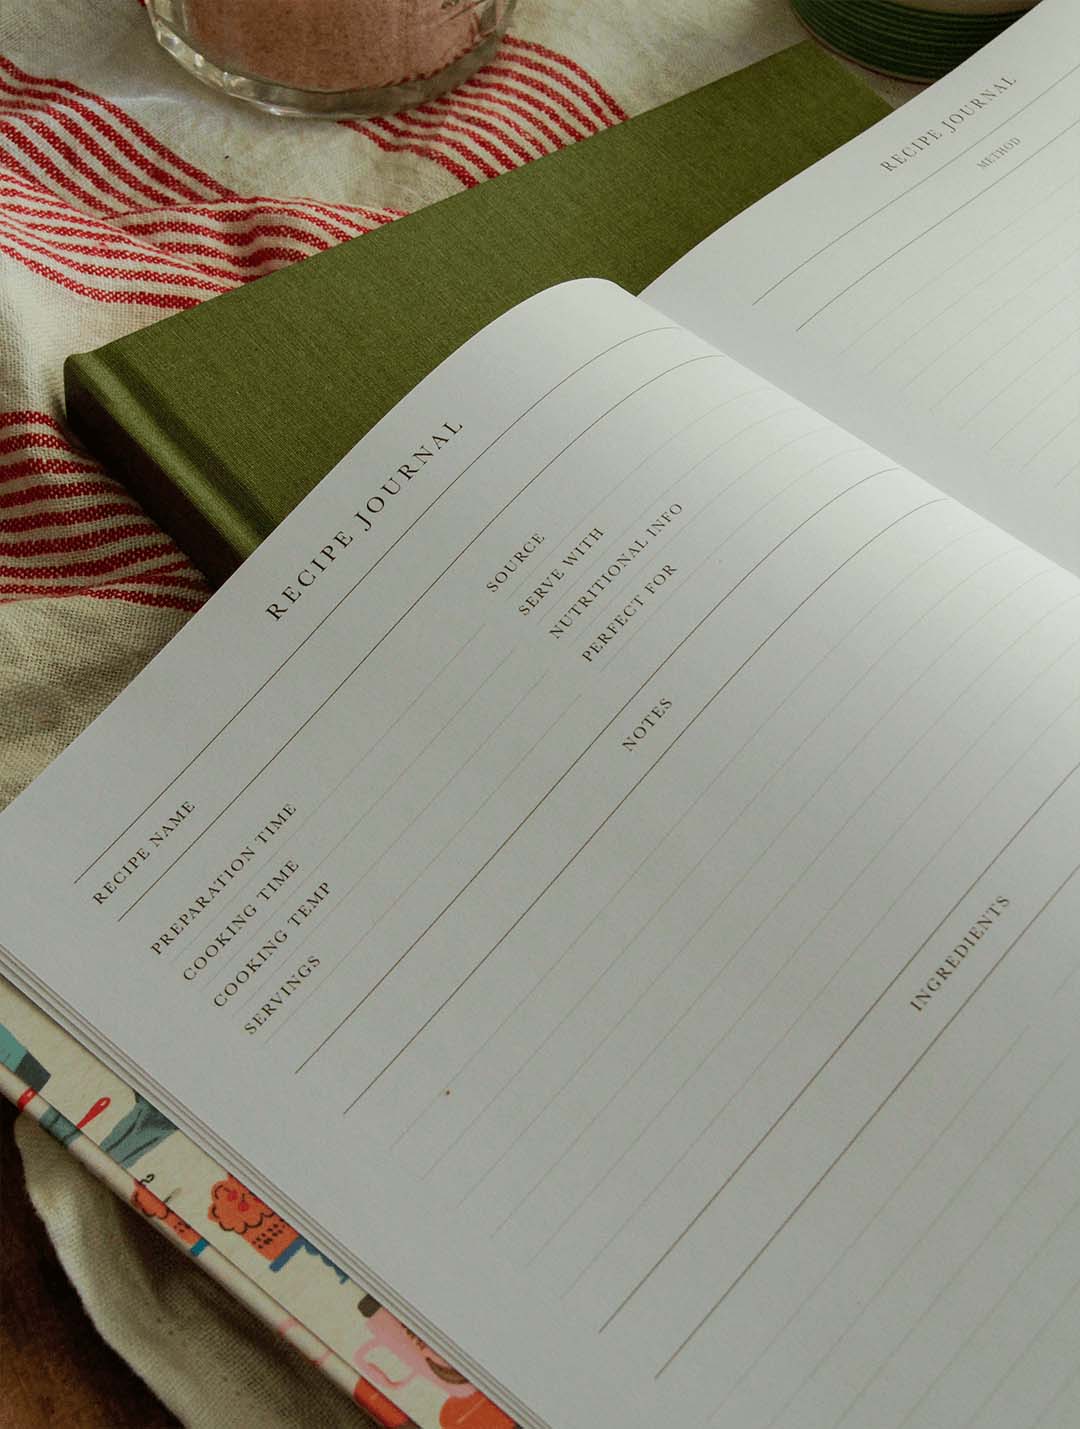 RECIPE JOURNAL
RECIPE NAME
PREPARATION TIME
COOKING TIME
COOKING TEMP
SERVINGS
SOURCE
SERVE WITH
NUTRITIONAL INFO
PERFECT FOR
NOTES
INGREDIENTS
RECIPE JOURNAL
METHOD